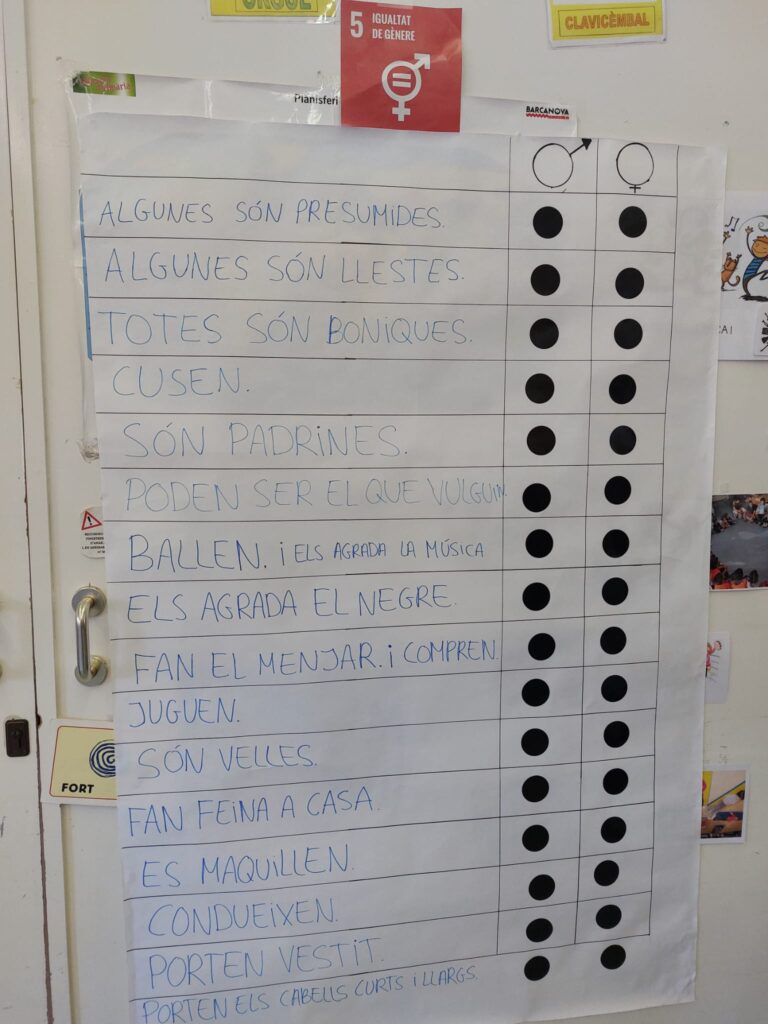 CLAVICÈMBAL
5 IGUALTAT
DE GÈNERE
Pianisferi
BARCANOVA
ALGUNES SÓN PRESUMIDES.
ALGUNES SÓN LLESTES.
TOTES SÓN BONIQUES.
CUSEN.
SÓN PADRINES.
PODEN SER EL QUE VULGUIN.
BALLEN. i ELS AGRADA LA MÚSICA
ELS AGRADA EL NEGRE.
FAN EL MENJAR. i COMPREN.
JUGUEN.
SÓN VELLES.
FAN FEINA A CASA.
ES MAQUILLEN.
CONDUEIXEN.
PORTEN VESTIT.
PORTEN ELS CABELLS CURTS i LLARGS.
FORT